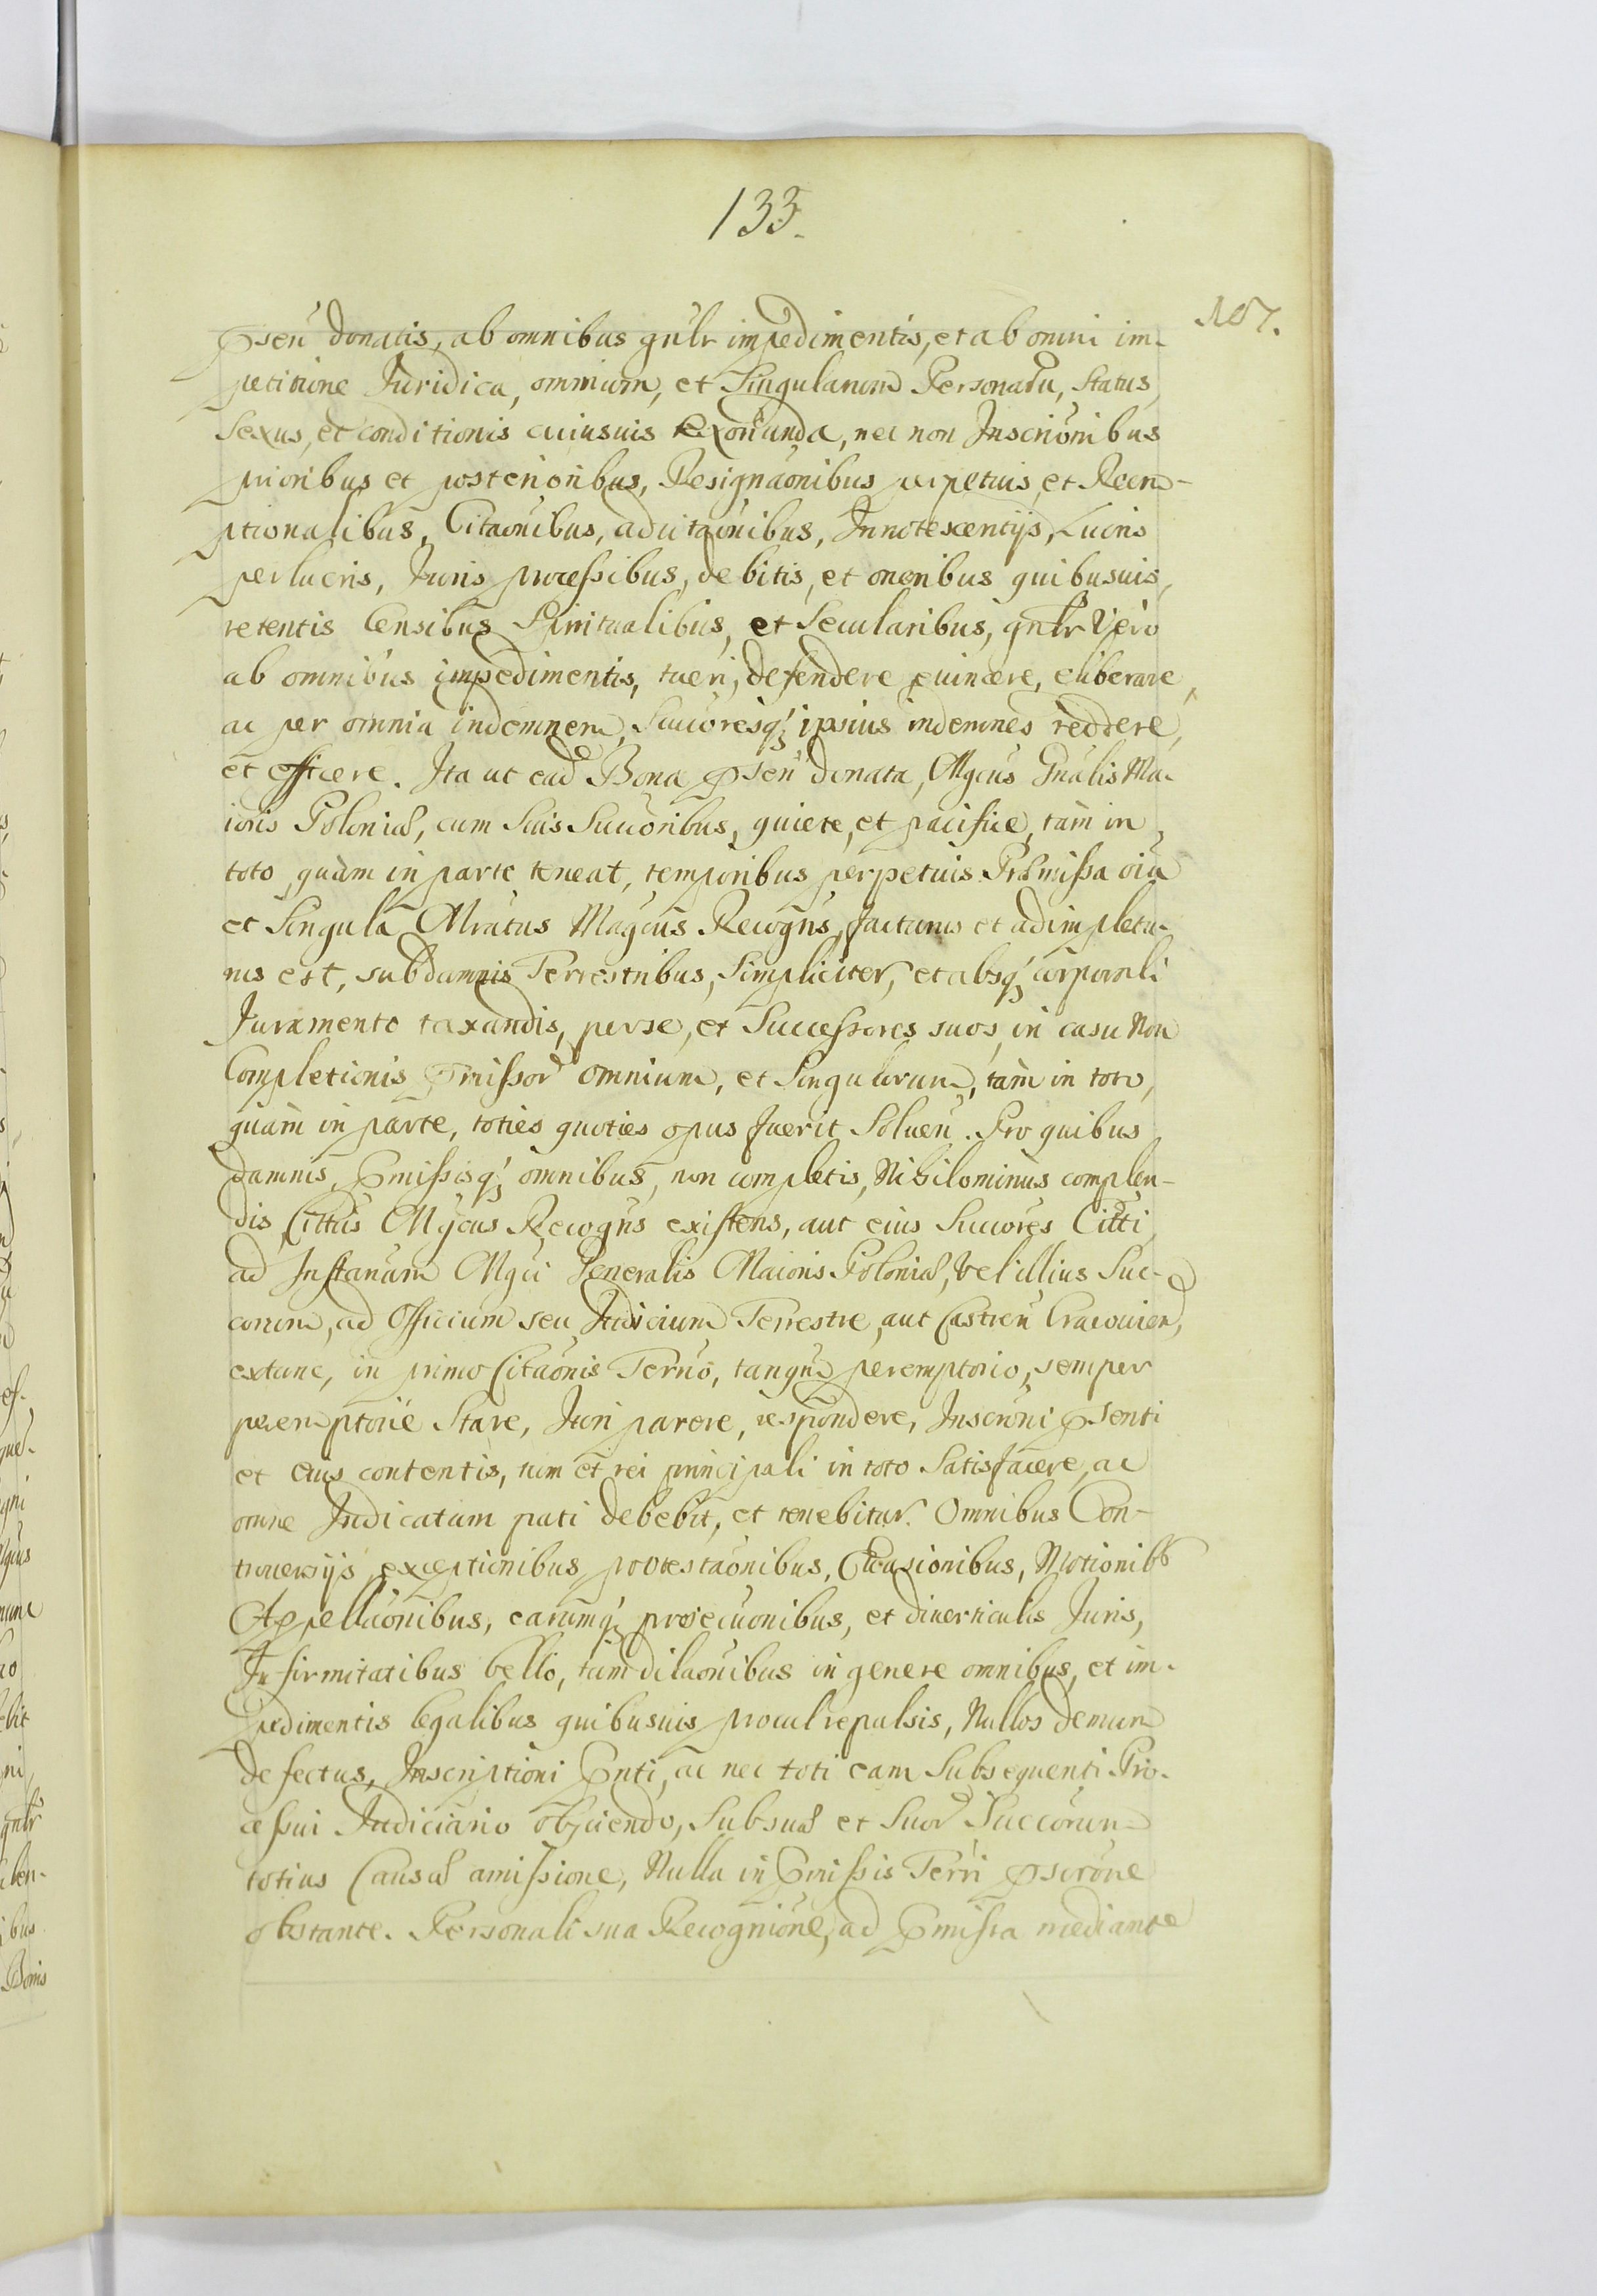 133.
107.
psen̄ donatis, ab omnibus gnl̃r impedimentis, et ab omni im-
petitione Juridica, omnium, et Singularum Personaru, Status,
Sexus, et conditionis cuiusuis exorīunda, nec non Inscriōnibus
prioribus et posterioribus, Resignāonibus perpetuis et Reem-
ptionalibus, Citāonibus, adcitāonibus, Innotescentijs, Lucris
perlucris, Juris processibus, debitis, et oneribus quibusuis,
retentis Censibus Spiritualibus, et Secularibus, gnl̃r Vero
ab omnibus impedimentis, tueri, defendere euincere, eliberare,
ac per omnia indemnem, Succoresq; ipsius indemnes reddere,
et efficere. Ita ut ead Bona psen̄ donata, Mgcus Gnālis Ma-
ioris Poloniæ, cum Suis Succoribus, quiete, et pacifice, tam in
toto quam in parte teneat, temporibus perpetuis. Præmissa oīa
et Singula Mrātus Magcus Recogns, facturus et adimpletu-
rus est, sub damnis Terrestribus, Simpliciter, et absq; corporali
Juramento taxandis, per se, et Successores suos, in casu Non
Completionis pmissor omnium, et Singulorum, tam in toto,
quam in parte, toties quoties opus fuerit Soluen̄. Pro quibus
damnis, pmissisq; omnibus, non completis, Nihilominus complen-
dis, Cittus Mgcus Recogns existens, aut eius Succores Citti,
ad Instanam Mgci Generalis Maioris Poloniæ, vel illius Suc-
corum, ad Officium seu Judicium Terrestre, aut Castren̄ Cracouien,
extunc, in primo Citāonis Terno, tanqm peremptorio, semper
peremptorie Stare, Iuri parere, respondere, Inscrōni psenti
et eius contentis, tum et rei principali in toto Satisfacere, ac
omne Judicatum pati debebit, et tenebitur. Omnibus Con-
trouersijs exceptionibus protestāonibus, Euasionibus, Motionibb
Appellāonibus, earumq; prosecuonibus, et diuerticulis Juris,
Infirmitatibus bello, tum dilāonibus in genere omnibus, et im-
pedimentis legalibus quibusuis procul repulsis, Nullos demum
defectus, Inscriptioni pnti, ac nec toti eam Subsequenti Pro-
cessui Judiciario obijciendo, Sub sua et Suor Succorum
totius Causæ amissione, Nulla in pmissis Terri pscrōne
obstante. Personali sua Recogniōne, ad pmissa mediante